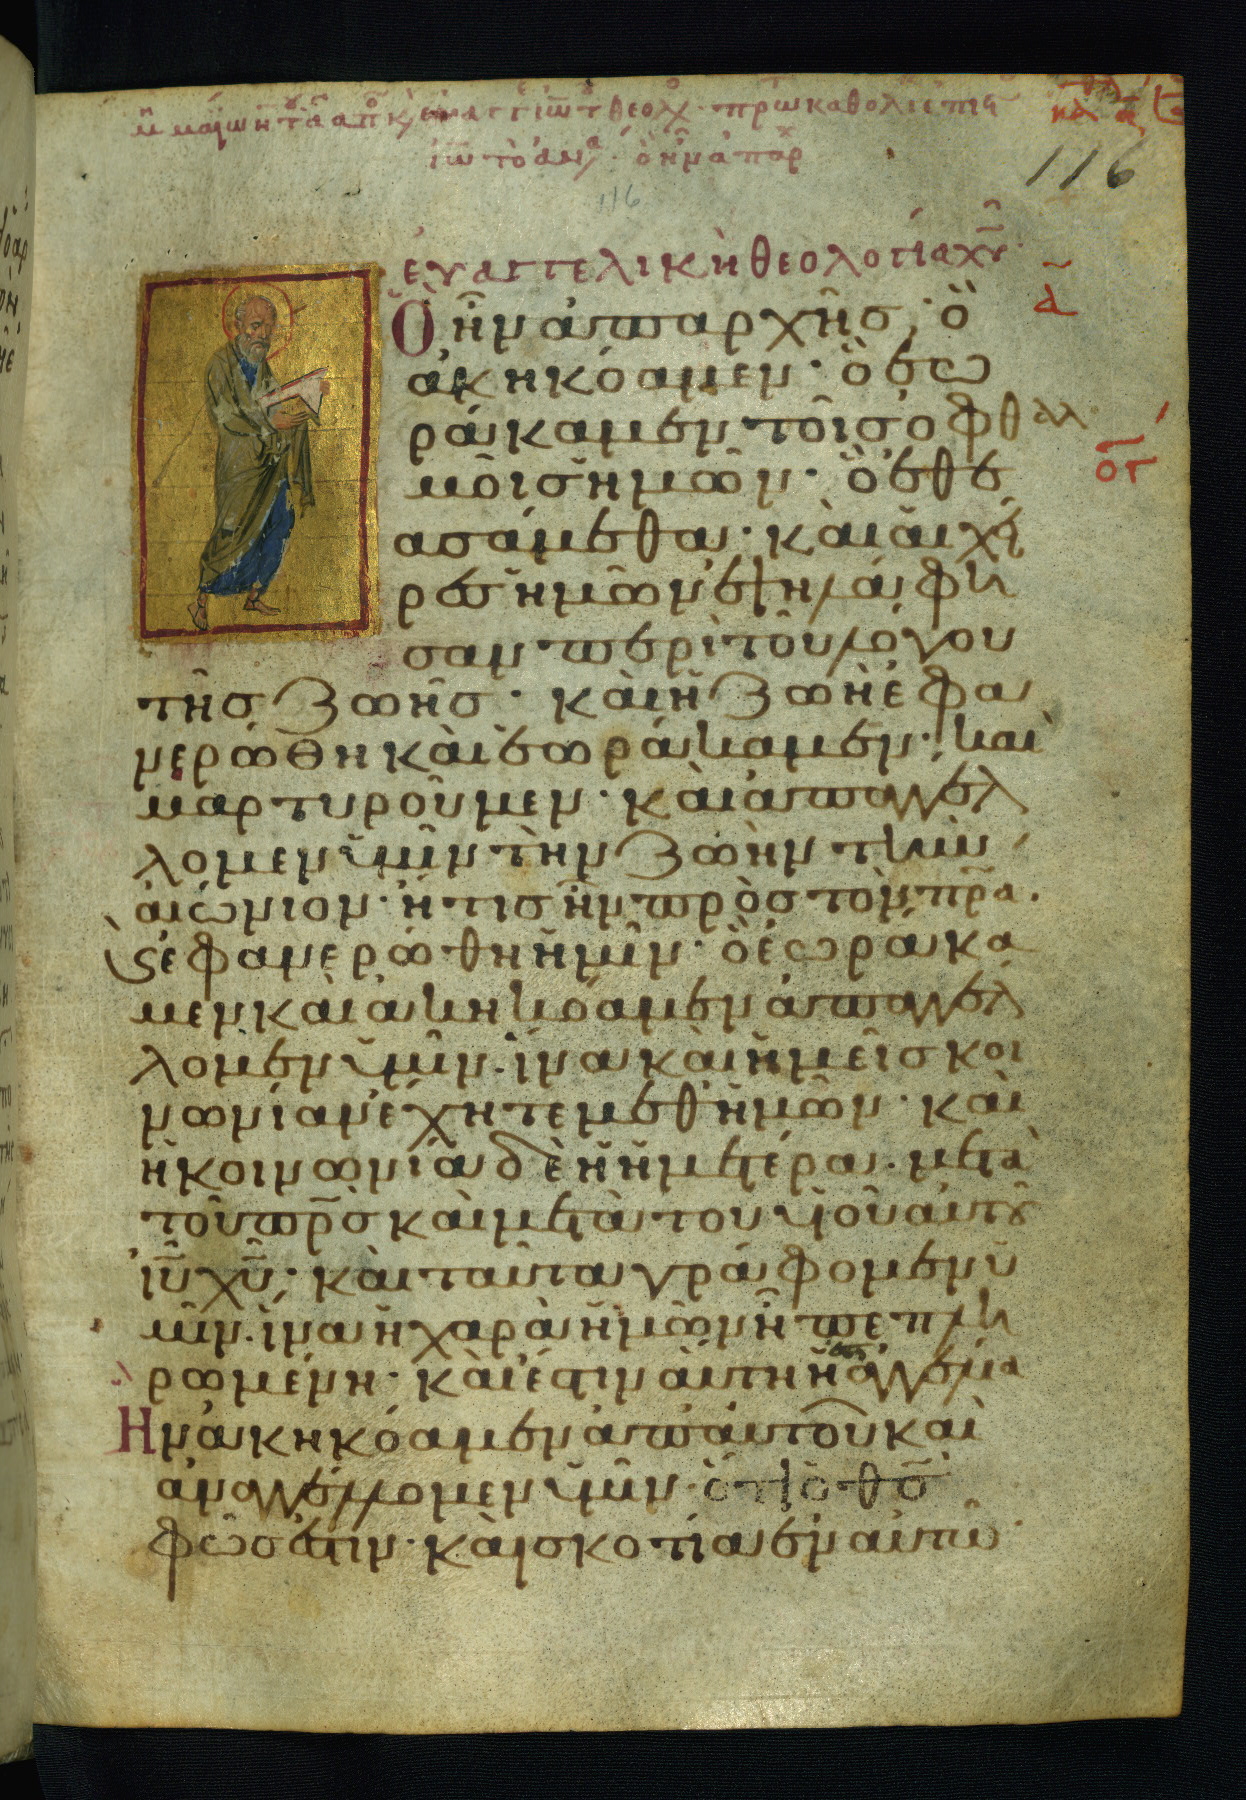 116
116
εὐαγγελικὴ θεολογία χῡ
ᾱ
Ὃ ἦν ἀπαρχῆς, ὃ
ἀκηκόαμεν· ὃ ἑω
ράκαμεν τοῖς ὀφθαλ
μοῖς ἡμῶν· ὃ ἐθε
ασάμεθα· καὶ αἱ χεῖ
ρες ἡμῶν ἐψηλάφη
σαν· περὶ τοῦ λόγου
τῆς ζωῆς· καὶ ἡ ζωὴ ἐφα
νερώθη καὶ ἑωράκαμεν· καὶ
μαρτυροῦμεν· καὶ ἀπαγγελ
λομεν ὑμῖν τὴν ζωὴν τὴν
αἰώνιον· ἥτις ἦν πρὸς τὸν πρ̅α.
ϗ ἐφανερώθη ἡμῖν· ὃ ἑωράκα
μεν καὶ ἀκηκόαμεν ἀπαγγελ
λομεν ὑμῖν. ἵνα καὶ ἡμεῖς κοι
νωνίαν ἔχητε μεθ' ἡμῶν· καὶ
ἡ κοινωνία δὲ ἡ ἡμετέρα. μετὰ
τοῦ πρ̅ς καὶ μετὰ του υἱοῦ αὐτοῦ
ἰῡ χῡ· καὶ ταῦτα γράφομεν ὑ
μῖν. ἵνα ἡ χαρὰ ἡμῶν ἦ πεπλη
ρωμένη· καὶ ἔστιν αὕτη ἡ ἀγγελία
Ἣν ἀκηκόαμεν ἀπ' αὐτοῦ καὶ
ἀναγγέλλομεν ὑμῖν· ὅτι ὁ θς̅
φῶς ἐστιν· καὶ σκοτία ἐν αὐτῶ